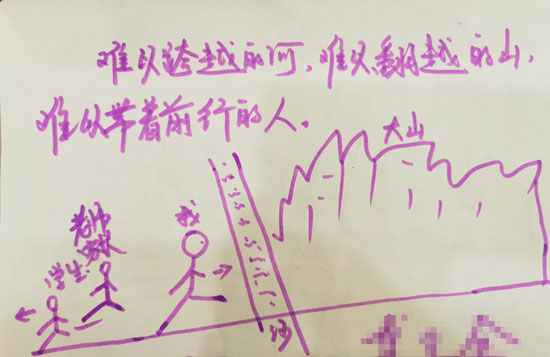 难以跨越的河,难以翻越的山,
难以带着前行的人。
大山
我
老师
学生